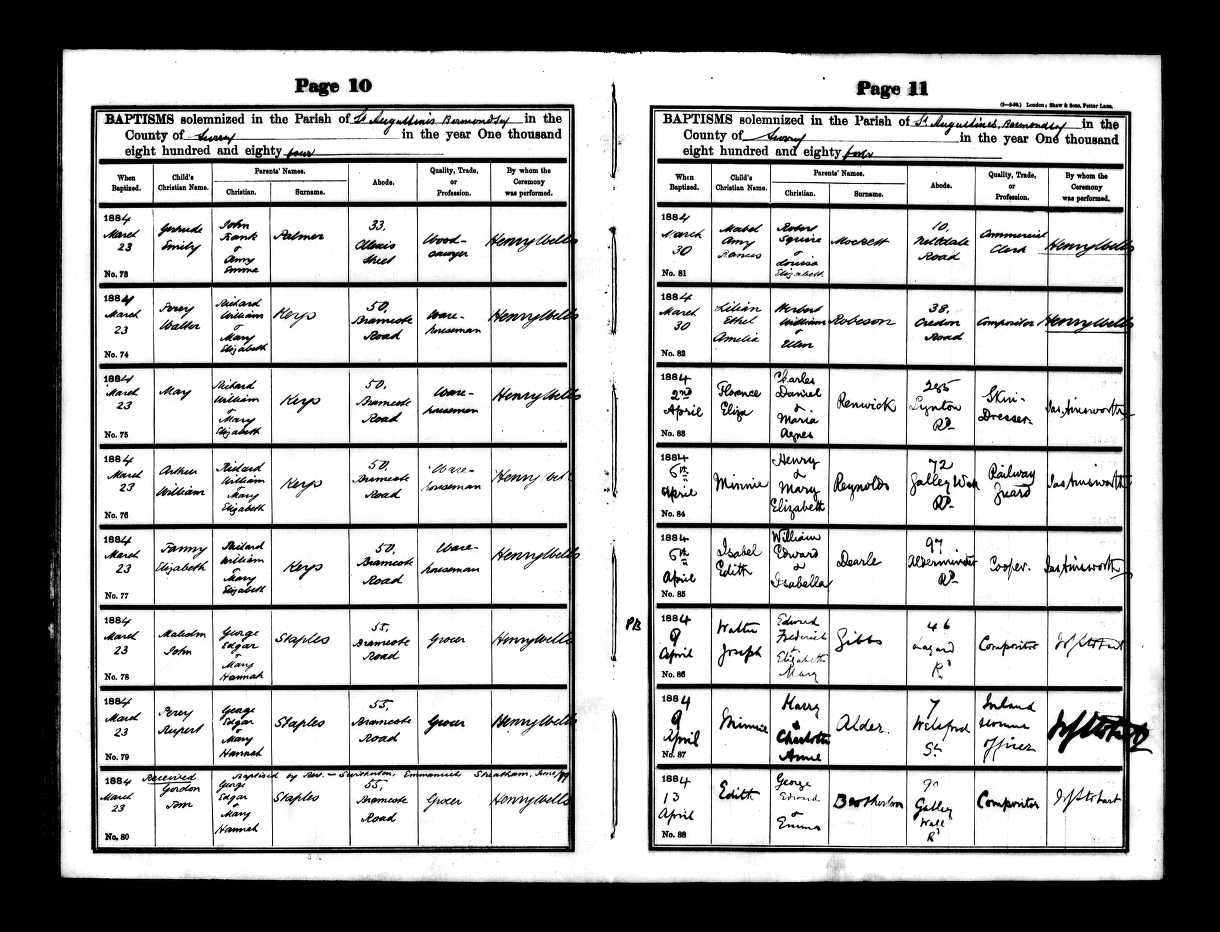 Page 10
BAPTISMS solemnized in the Parish of St Augustine's Bermondsey in the
County of Surrey in the year One thousand
eight hundred and eighty four
When Baptized. Child's Christian Name. Parents' Names. Christian. Surname. Abode. Quality, Trade, or Profession. By whom the Ceremony was performed.
1884 March 23 No. 73 Gertrude Emily John Frank & Amy Emma Palmer 33, Alexis Street Wood-sawyer Henry Wells
1884 March 23 No. 74 Percy Walter Richard William & Mary Elizabeth Keys 50, Bramcote Road Ware-houseman Henry Wells
1884 March 23 No. 75 May Richard William & Mary Elizabeth Keys 50, Bramcote Road Ware-houseman Henry Wells
1884 March 23 No. 76 Arthur William Richard William & Mary Elizabeth Keys 50, Bramcote Road Ware-houseman Henry
1884 March 23 No. 77 Fanny Elizabeth Richard William & Mary Elizabeth Keys 50, Bramcote Road Ware-houseman Henry Wells
1884 March 23 No. 78 Malcolm John George Edgar & Mary Hannah Staples 55, Bramcote Road Grocer Henry Wells
1884 March 23 No. 79 Percy Rupert George Edgar & Mary Hannah Staples 55, Bramcote Road Grocer Henry Wells
Received Baptised by Rev. Emmanuel Streatham, June
1884 March 23 No. 80 Gordon Tom George Edgar & Mary Hannah Staples 55, Bramcote Road Grocer Henry Wells
Page 11
(9—5-80.) London: Shaw & Sons, Fetter Lane.
BAPTISMS solemnized in the Parish of St Augustine's, Bermondsey in the
County of Surrey in the year One thousand
eight hundred and eighty four
When Baptized. Child's Christian Name. Parents' Names. Christian. Surname. Abode. Quality, Trade, or Profession. By whom the Ceremony was performed.
1884 March 30 No. 81 Mabel Amy Frances Robert Squire & Louisa Elizabeth Mockett 10, Road Commercial Clerk Henry Wells
1884 March 30 No. 82 Lilian Ethel Amelia Herbert William & Ellen Robeson 38, Credon Road Compositor Henry Wells
1884 2nd April No. 83 Florence Eliza Charles Daniel & Maria Agnes Renwick 285 Lynton Rd. Skin-Dresser Jas. Ainsworth
1884 6th April No. 84 Minnie Henry & Mary Elizabeth Reynolds 72 Galley Wall Rd. Railway Guard Jas. Ainsworth
1884 6th April No. 85 Isabel Edith William Edward & Isabella Dearle 97 Alderminster Rd. Cooper. Jas. Ainsworth
PB
1884 9 April No. 86 Walter Joseph Edward Frederick & Elizabeth Mary Gibbs 46 Rd Compositor J Stobart
1884 9 April No. 87 Minnie Harry & Charlotte Annie Alder. 7 St. Inland revenue officer J Stobart
1884 13 April No. 88 Edith George Edward & Emma Brotherton Galley Wall Rd Compositor J Stobart